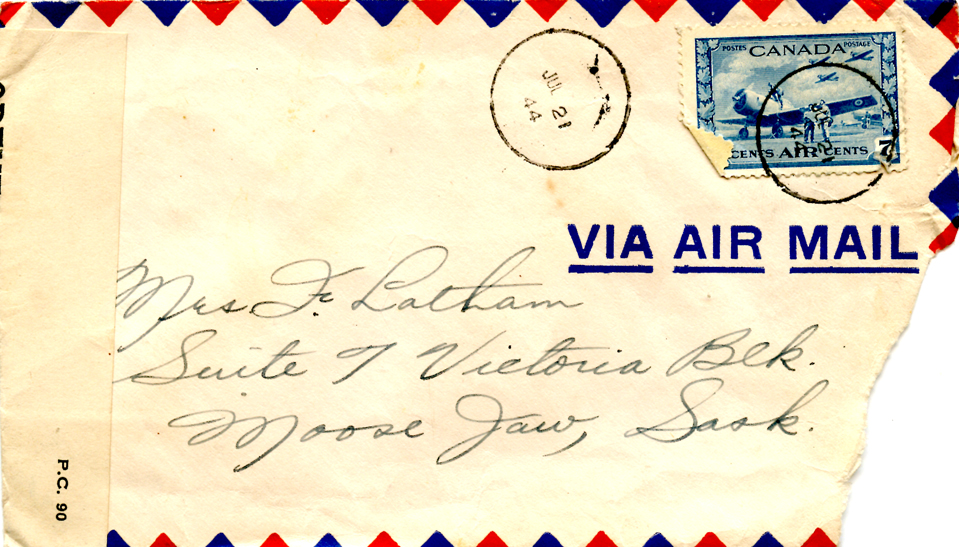 POSTES CANADA POSTAGE
CENTS AIR CENTS 7
JUL 21
44
JUL 21
44
VIA AIR MAIL
Mrs. F. Latham
Suite 7 Victoria Blk.
Moose Jaw, Sask.
P.C. 90